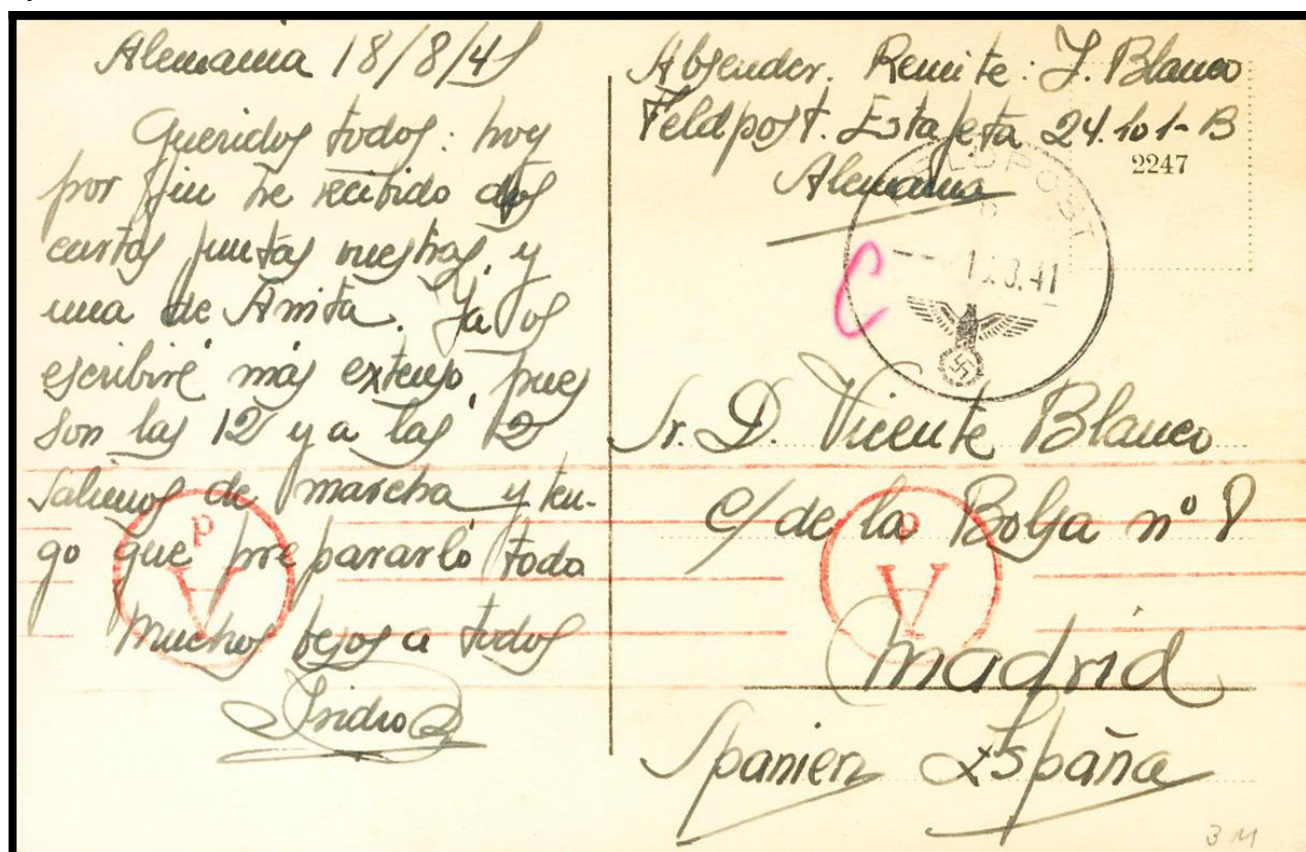 Alemania 18/8/41
Queridos todos: hoy
por fin he recibido dos
cartas juntas vuestras, y
una de Anita. Ya os
escribiré más extenso, pues
son las 12 y a las 2
salimos de marcha y ten-
go que prepararlo todo
Muchos besos a todos
Isidro
Absender. Remite: I. Blanco
Feldpost. Estafeta 24.101-B
Alemania
2247
FELDPOST
b
.8.41
C
Sr. D. Vicente Blanco
c/ de la Bolsa nº 8
Madrid
Spanien España
A
d
A
d
3 M